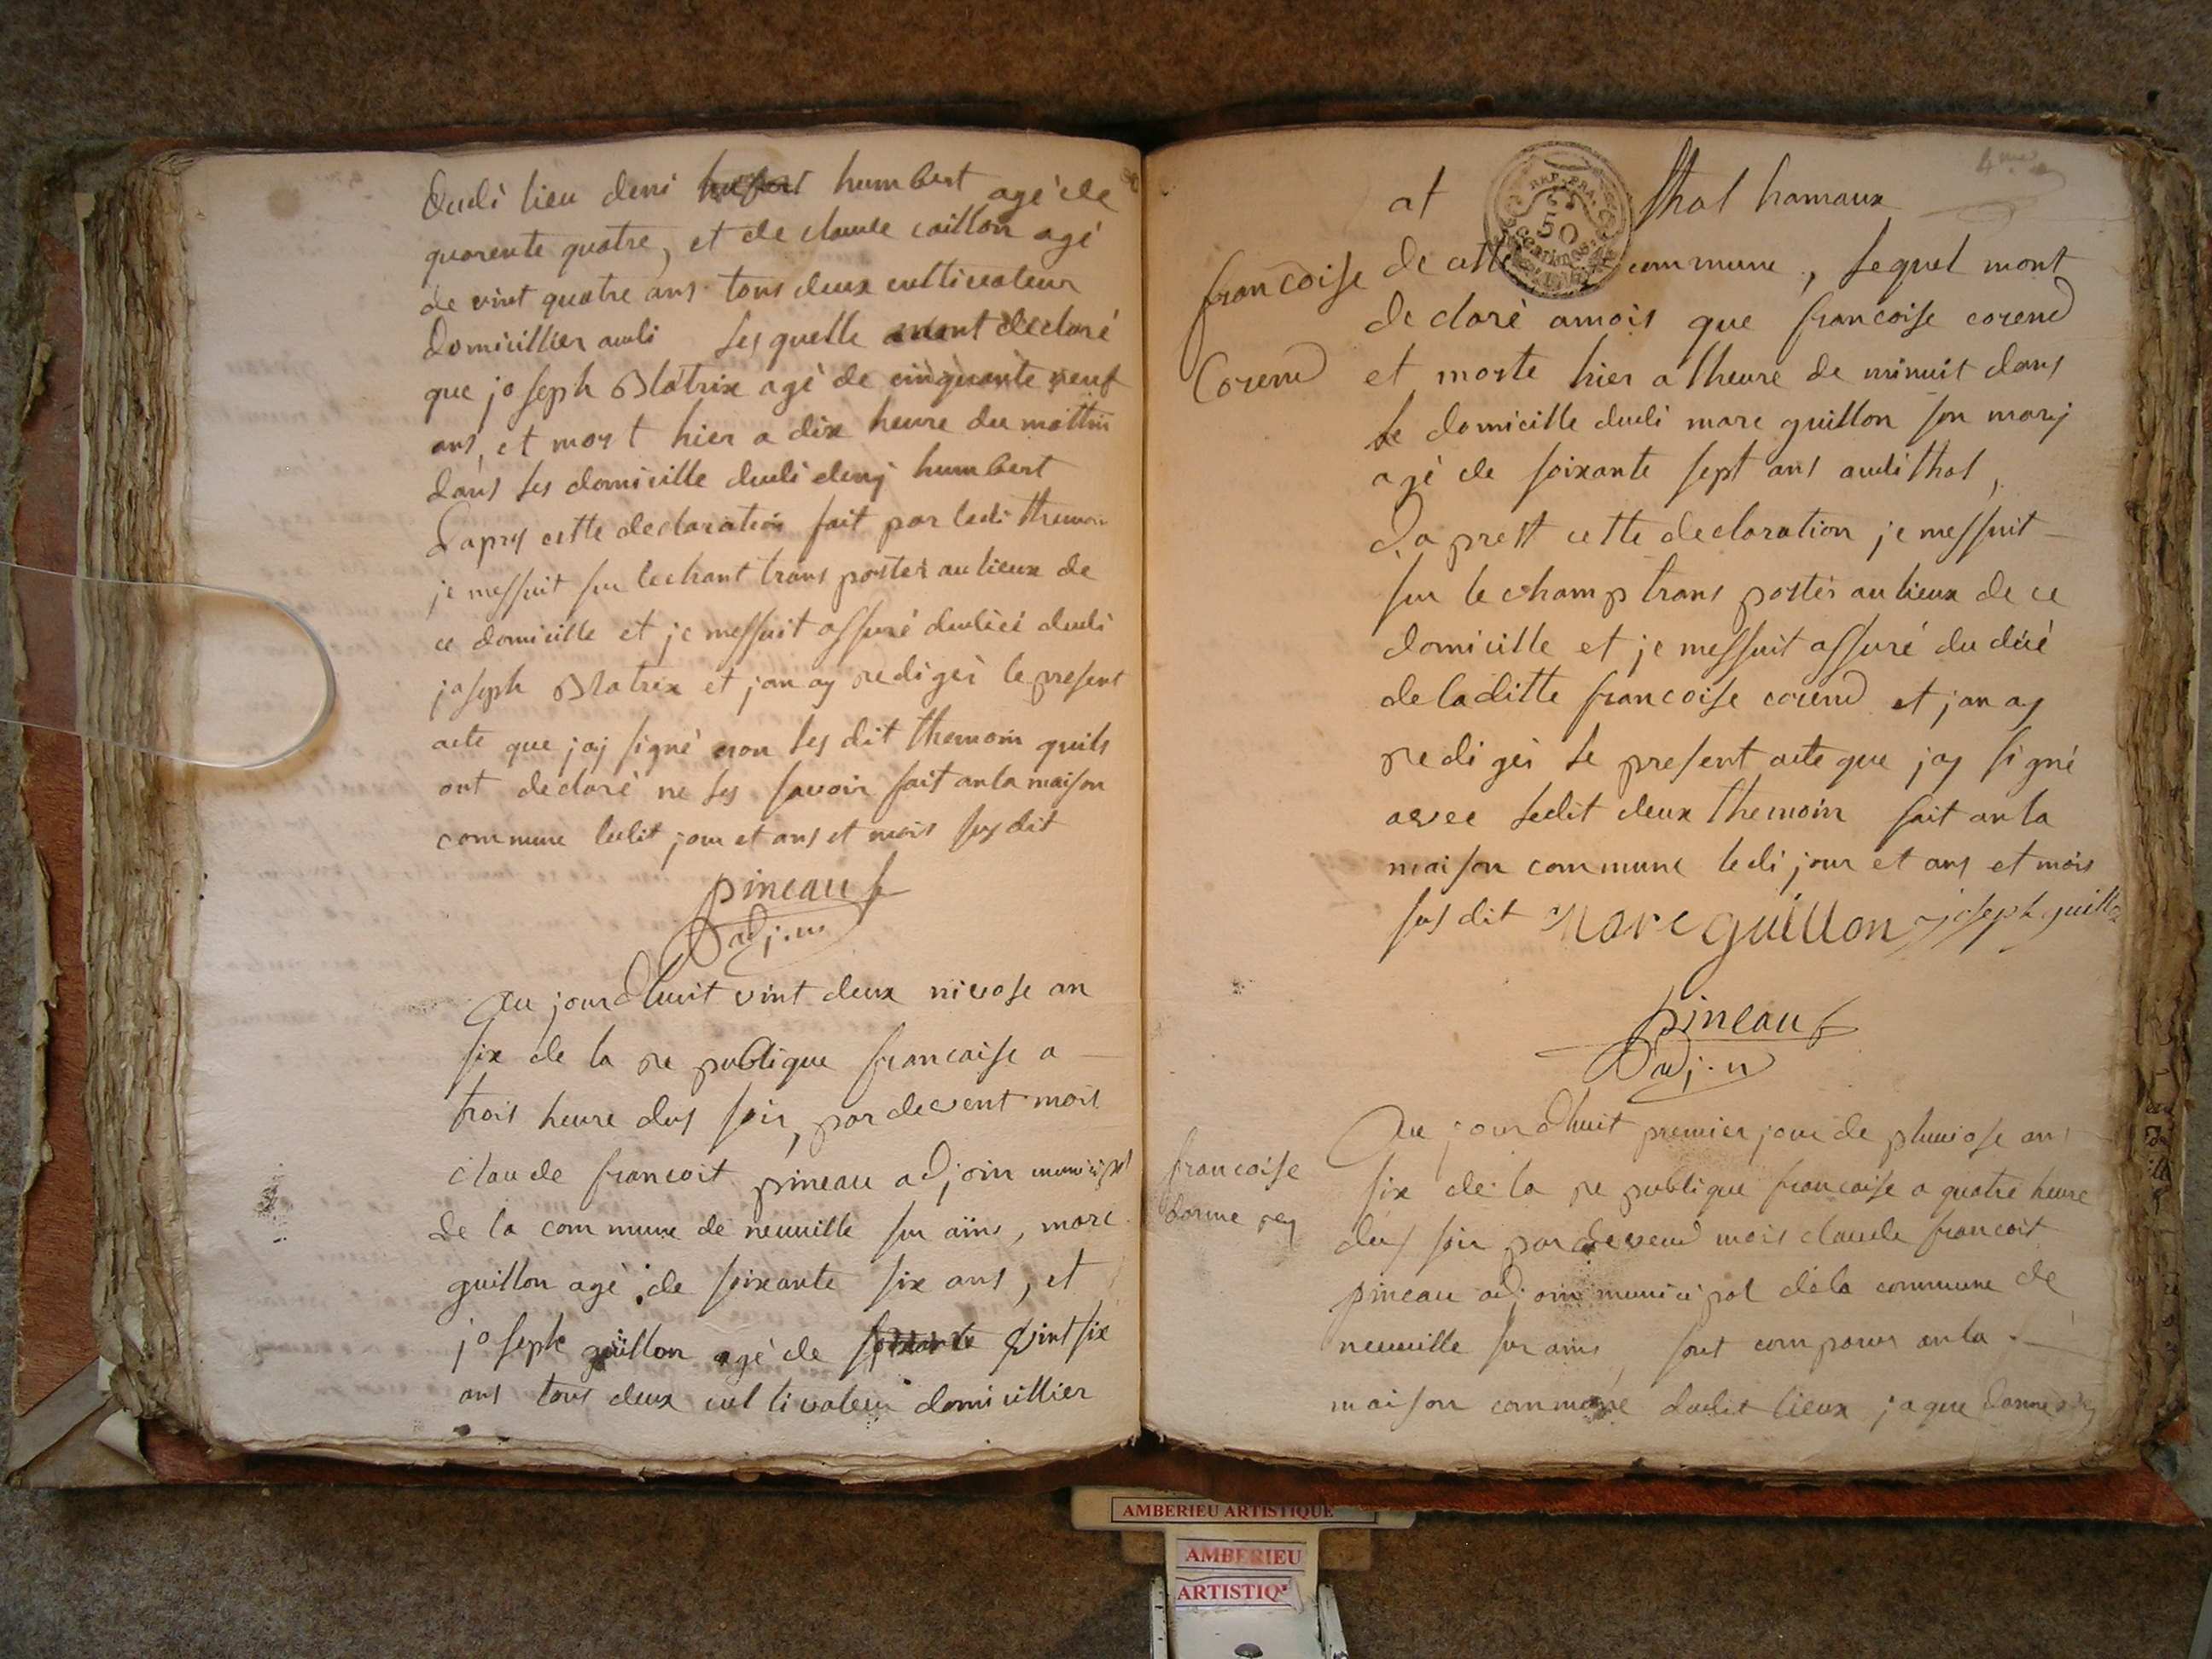 dudi lieu deni humbert agé de
quarente quatre, et de claude caillon agé
de vint quatre ans tous deux cultivateur
domicillier audi lesquelle mont declaré
que joseph Blatrix agé de cinquante neuf
ans, et mort hier a dix heure du mattin
dans les domicille dudi denj humbert
dapres cette declaration fait par ledi themoin
je messuit sur lechant transporter au lieux de
ce domicille et je messuit assuré dudécé dudi
joseph Blatrix et jan ay redigér le present
acte que jaj signé non les dit themoin quils
ont declaré ne les savoir fait anla maison
commune ledit jour et ans et mois sus dit
pineau
adjoin
Au jourdhuit vint deux nivose an
six de la republique francaise a
trois heure dus soir, pardevent mois
claude francoit pineau adjoin municipal
de la commune de neuville sur ains, marc
guillon agé de soixante six ans, et
joseph guillon agé de vint six
ans tous deux cultivateur domicillier
4me
at thol hamaux
de cette commune, lequel mont
REP. FRA.
50
CENTIMES
francoise
corend
declaré amois que francoise corend
et morte hier a lheure de minuit dans
le domicille dudi marc guillon son marj
agé de soixante sept ans audi thol,
Daprest cette declaration je messuit
sur le champ transporter au lieux de ce
domicille et je messuit assuré du décé
de laditte francoise corend et jan ay
redigér le present acte que jay signé
avec ledit deux themoin fait anla
maison commune ledi jour et ans et mois
sus dit Marc guillon joseph guillon
pineau
adjoin
francoise
donne rey
Au jourdhuit premier jour de pluviose an
six de la republique francaise a quatre heure
dus soir pardevend mois claude francoit
pineau adjoin municipal de la commune de
neuville sur ains, sont comparus anla
maison commune dudit lieux jaque donne rey
AMBERIEU ARTISTIQUE
AMBERIEU
ARTISTIQ